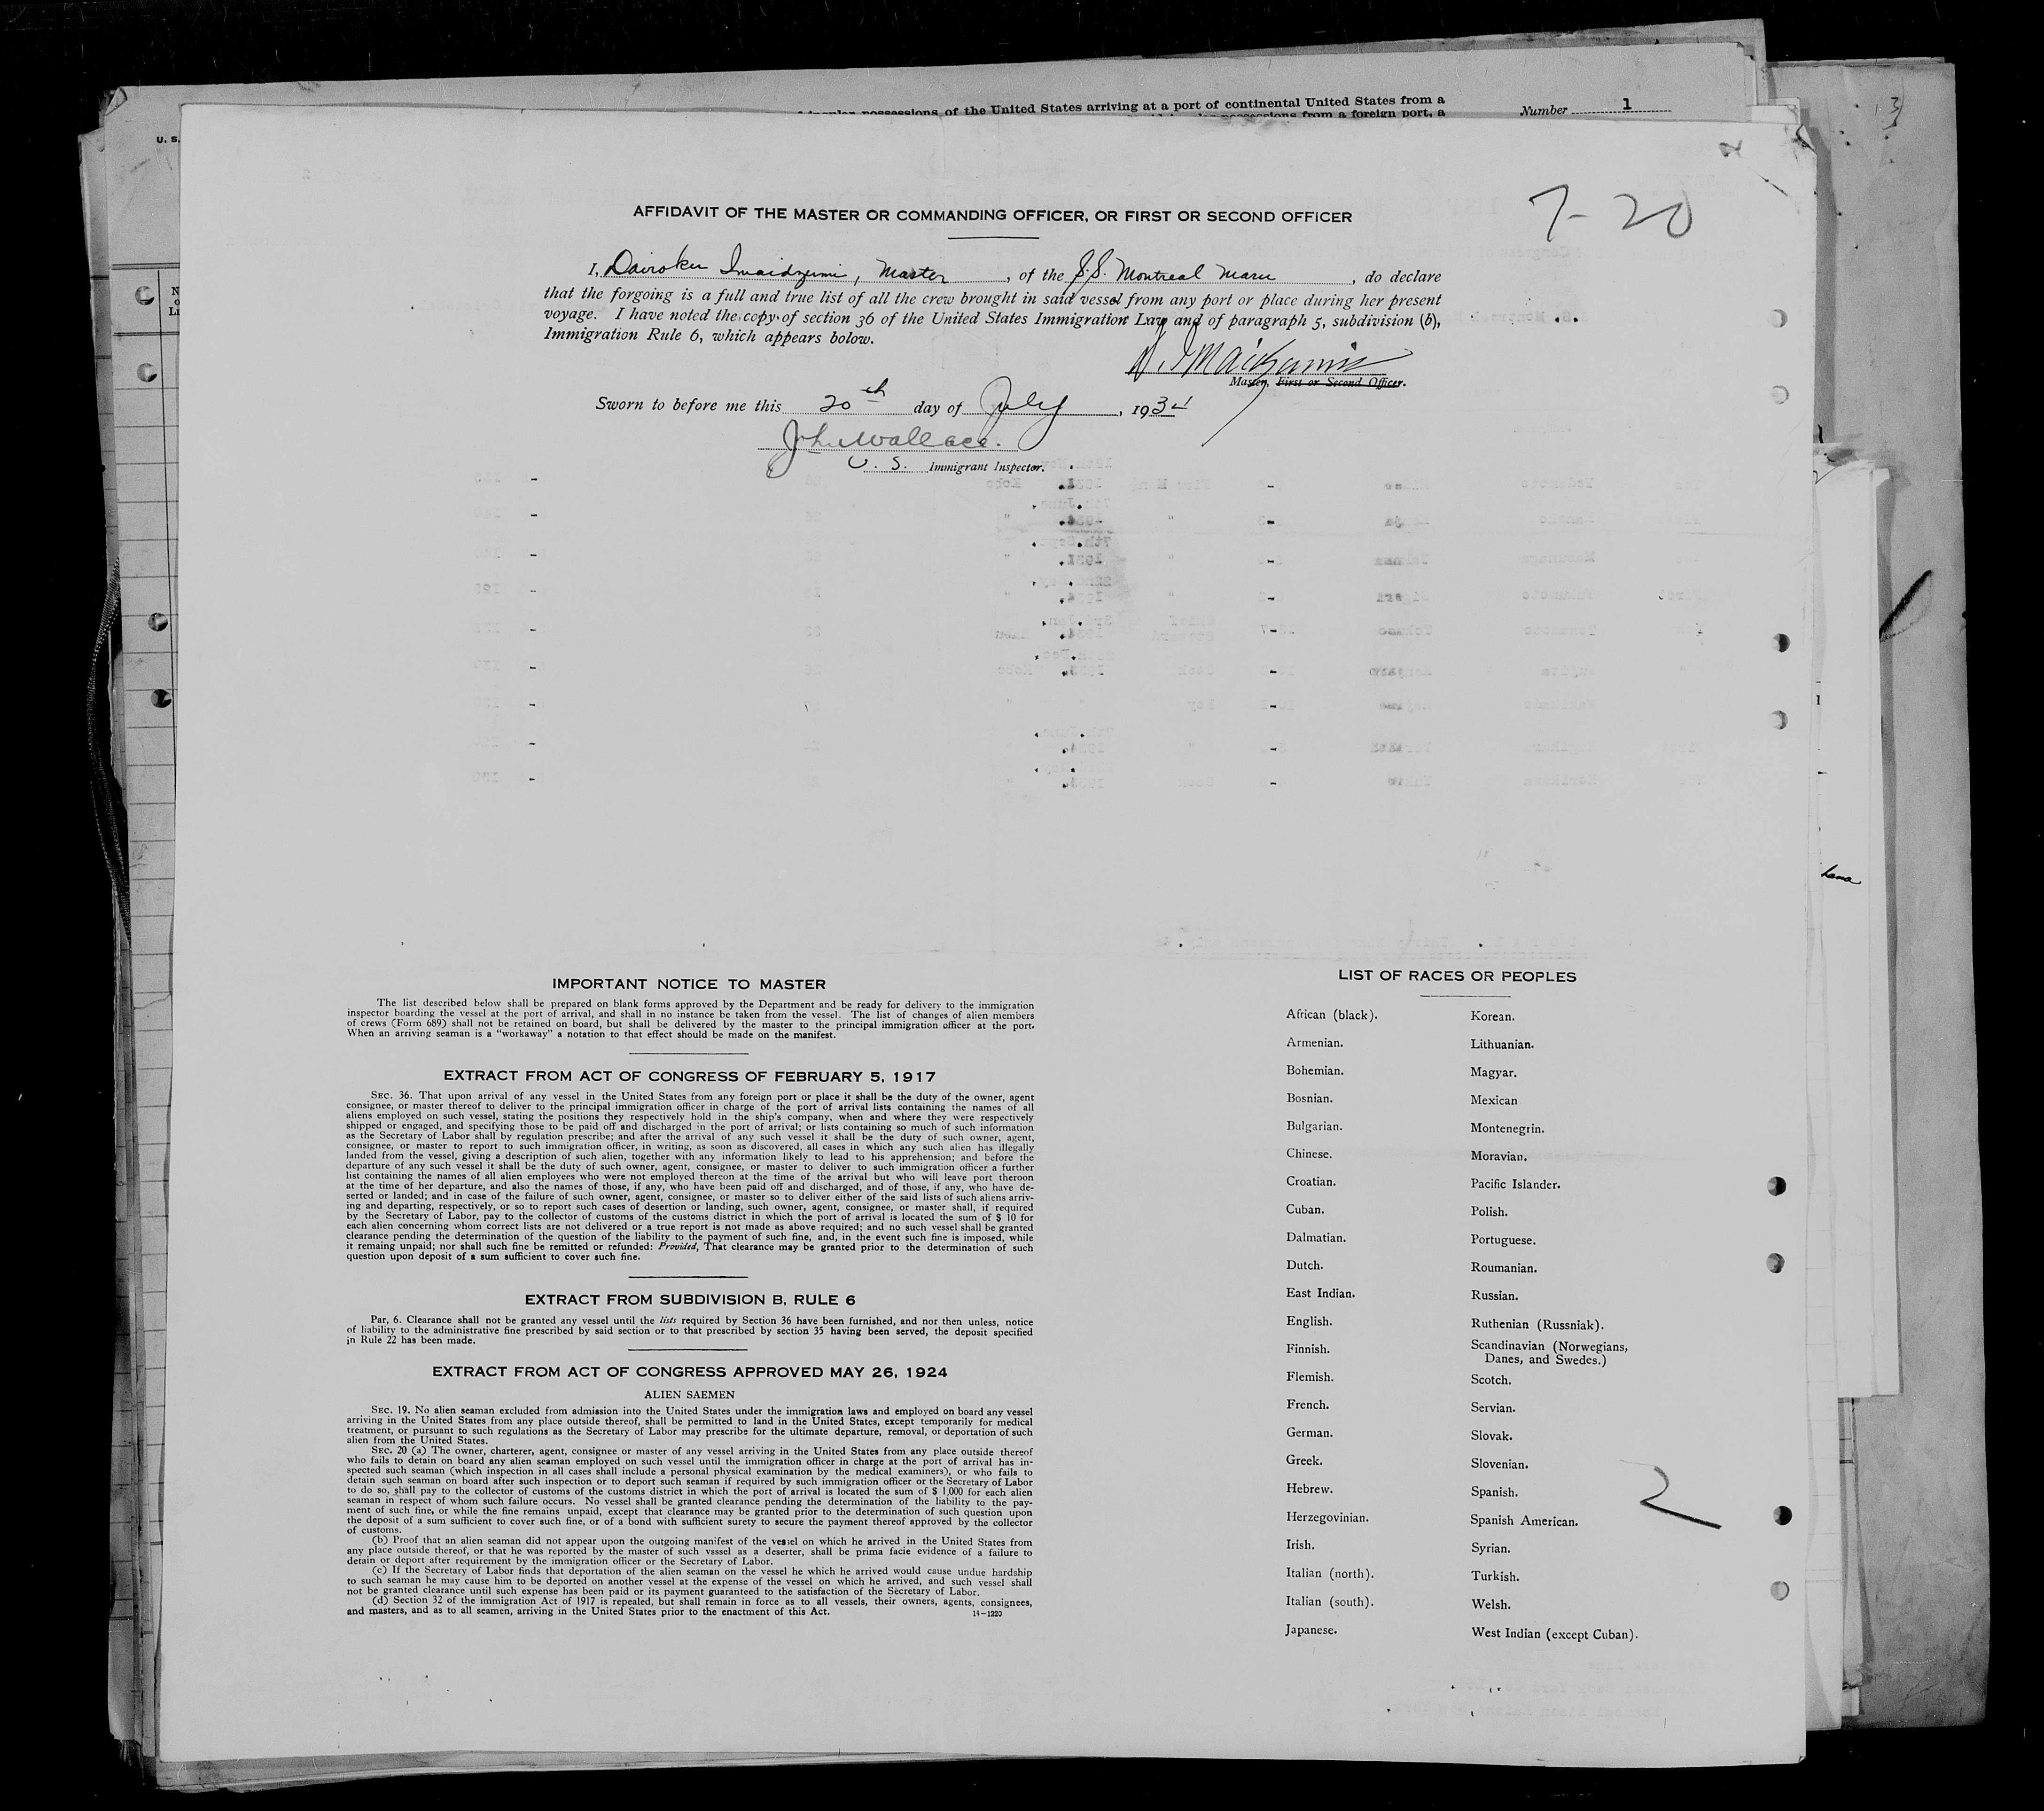 possessions of the United States arriving at a port of continental United States from a
possessions from a foreign port, a
Number 1
U. S.
7-20
AFFIDAVIT OF THE MASTER OR COMMANDING OFFICER, OR FIRST OR SECOND OFFICER
I, Dairoku Imaidzumi, Master, of the S.S. Montreal Maru, do declare
that the forgoing is a full and true list of all the crew brought in said vessel from any port or place during her present
voyage. I have noted the copy of section 36 of the United States Immigration Law and of paragraph 5, subdivision (b),
Immigration Rule 6, which appears bolow.
D. Imaidzumi
Master, First or Second Officer.
Sworn to before me this 20th day of July, 1934
John Wallace.
U. S. Immigrant Inspector.
IMPORTANT NOTICE TO MASTER
The list described below shall be prepared on blank forms approved by the Department and be ready for delivery to the immigration
inspector boarding the vessel at the port of arrival, and shall in no instance be taken from the vessel. The list of changes of alien members
of crews (Form 689) shall not be retained on board, but shall be delivered by the master to the principal immigration officer at the port.
When an arriving seaman is a "workaway" a notation to that effect should be made on the manifest.
EXTRACT FROM ACT OF CONGRESS OF FEBRUARY 5, 1917
SEC. 36. That upon arrival of any vessel in the United States from any foreign port or place it shall be the duty of the owner, agent
consignee, or master thereof to deliver to the principal immigration officer in charge of the port of arrival lists containing the names of all
aliens employed on such vessel, stating the positions they respectively hold in the ship's company, when and where they were respectively
shipped or engaged, and specifying those to be paid off and discharged in the port of arrival; or lists containing so much of such information
as the Secretary of Labor shall by regulation prescribe; and after the arrival of any such vessel it shall be the duty of such owner, agent,
consignee, or master to report to such immigration officer, in writing, as soon as discovered, all cases in which any such alien has illegally
landed from the vessel, giving a description of such alien, together with any information likely to lead to his apprehension; and before the
departure of any such vessel it shall be the duty of such owner, agent, consignee, or master to deliver to such immigration officer a further
list containing the names of all alien employers who were not employed thereon at the time of the arrival but who will leave port theroon
at the time of her departure, and also the names of those, if any, who have been paid off and discharged, and of those, if any, who have de-
serted or landed; and in case of the failure of such owner, agent, consignee, or master so to deliver either of the said lists of such aliens arriv-
ing and departing, respectively, or so to report such cases of desertion or landing, such owner, agent, consignee, or master shall, if required
by the Secretary of Labor, pay to the collector of customs of the customs district in which the port of arrival is located the sum of $ 10 for
each alien concerning whom correct lists are not delivered or a true report is not made as above required; and no such vessel shall be granted
clearance pending the determination of the question of the liability to the payment of such fine, and, in the event such fine is imposed, while
it remaing unpaid; nor shall such fine be remitted or refunded: Provided, That clearance may be granted prior to the determination of such
question upon deposit of a sum sufficient to cover such fine.
EXTRACT FROM SUBDIVISION B, RULE 6
Par, 6. Clearance shall not be granted any vessel until the lists required by Section 36 have been furnished, and nor then unless, notice
of liability to the administrative fine prescribed by said section or to that prescribed by section 35 having been served, the deposit specified
in Rule 22 has been made.
EXTRACT FROM ACT OF CONGRESS APPROVED MAY 26, 1924
ALIEN SAEMEN
SEC. 19. No alien seaman excluded from admission into the United States under the immigration laws and employed on board any vessel
arriving in the United States from any place outside thereof, shall be permitted to land in the United States, except temporarily for medical
treatment, or pursuant to such regulations as the Secretary of Labor may prescribe for the ultimate departure, removal, or deportation of such
alien from the United States.
SEC. 20 (a) The owner, charterer, agent, consignee or master of any vessel arriving in the United States from any place outside thereof
who fails to detain on board any alien seaman employed on such vessel until the immigration officer in charge at the port of arrival has in-
spected such seaman (which inspection in all cases shall include a personal physical examination by the medical examiners), or who fails to
detain such seaman on board after such inspection or to deport such seaman if required by such immigration officer or the Secretary of Labor
to do so, shall pay to the collector of customs of the customs district in which the port of arrival is located the sum of $ 1,000 for each alien
seaman in respect of whom such failure occurs. No vessel shall be granted clearance pending the determination of the liability to the pay-
ment of such fine, or while the fine remains unpaid, except that clearance may be granted prior to the determination of such question upon
the deposit of a sum sufficient to cover such fine, or of a bond with sufficient surety to secure the payment thereof approved by the collector
of customs.
(b) Proof that an alien seaman did not appear upon the outgoing manifest of the vessel on which he arrived in the United States from
any place outside thereof, or that he was reported by the master of such vsssel as a deserter, shall be prima facie evidence of a failure to
detain or deport after requirement by the immigration officer or the Secretary of Labor.
(c) If the Secretary of Labor finds that deportation of the alien seaman on the vessel he which he arrived would cause undue hardship
to such seaman he may cause him to be deported on another vessel at the expense of the vessel on which he arrived, and such vessel shall
not be granted clearance until such expense has been paid or its payment guaranteed to the satisfaction of the Secretary of Labor.
(d) Section 32 of the immigration Act of 1917 is repealed, but shall remain in force as to all vessels, their owners, agents, consignees,
and masters, and as to all seamen, arriving in the United States prior to the enactment of this Act.
14-1220
LIST OF RACES OR PEOPLES
African (black).
Armenian.
Bohemian.
Bosnian.
Bulgarian.
Chinese.
Croatian.
Cuban.
Dalmatian.
Dutch.
East Indian.
English.
Finnish.
Flemish.
French.
German.
Greek.
Hebrew.
Herzegovinian.
Irish.
Italian (north).
Italian (south).
Japanese.
Korean.
Lithuanian.
Magyar.
Mexican
Montenegrin.
Moravian.
Pacific Islander.
Polish.
Portuguese.
Roumanian.
Russian.
Ruthenian (Russniak).
Scandinavian (Norwegians,
Danes, and Swedes.)
Scotch.
Servian.
Slovak.
Slovenian.
Spanish.
Spanish American.
Syrian.
Turkish.
Welsh.
West Indian (except Cuban).
2